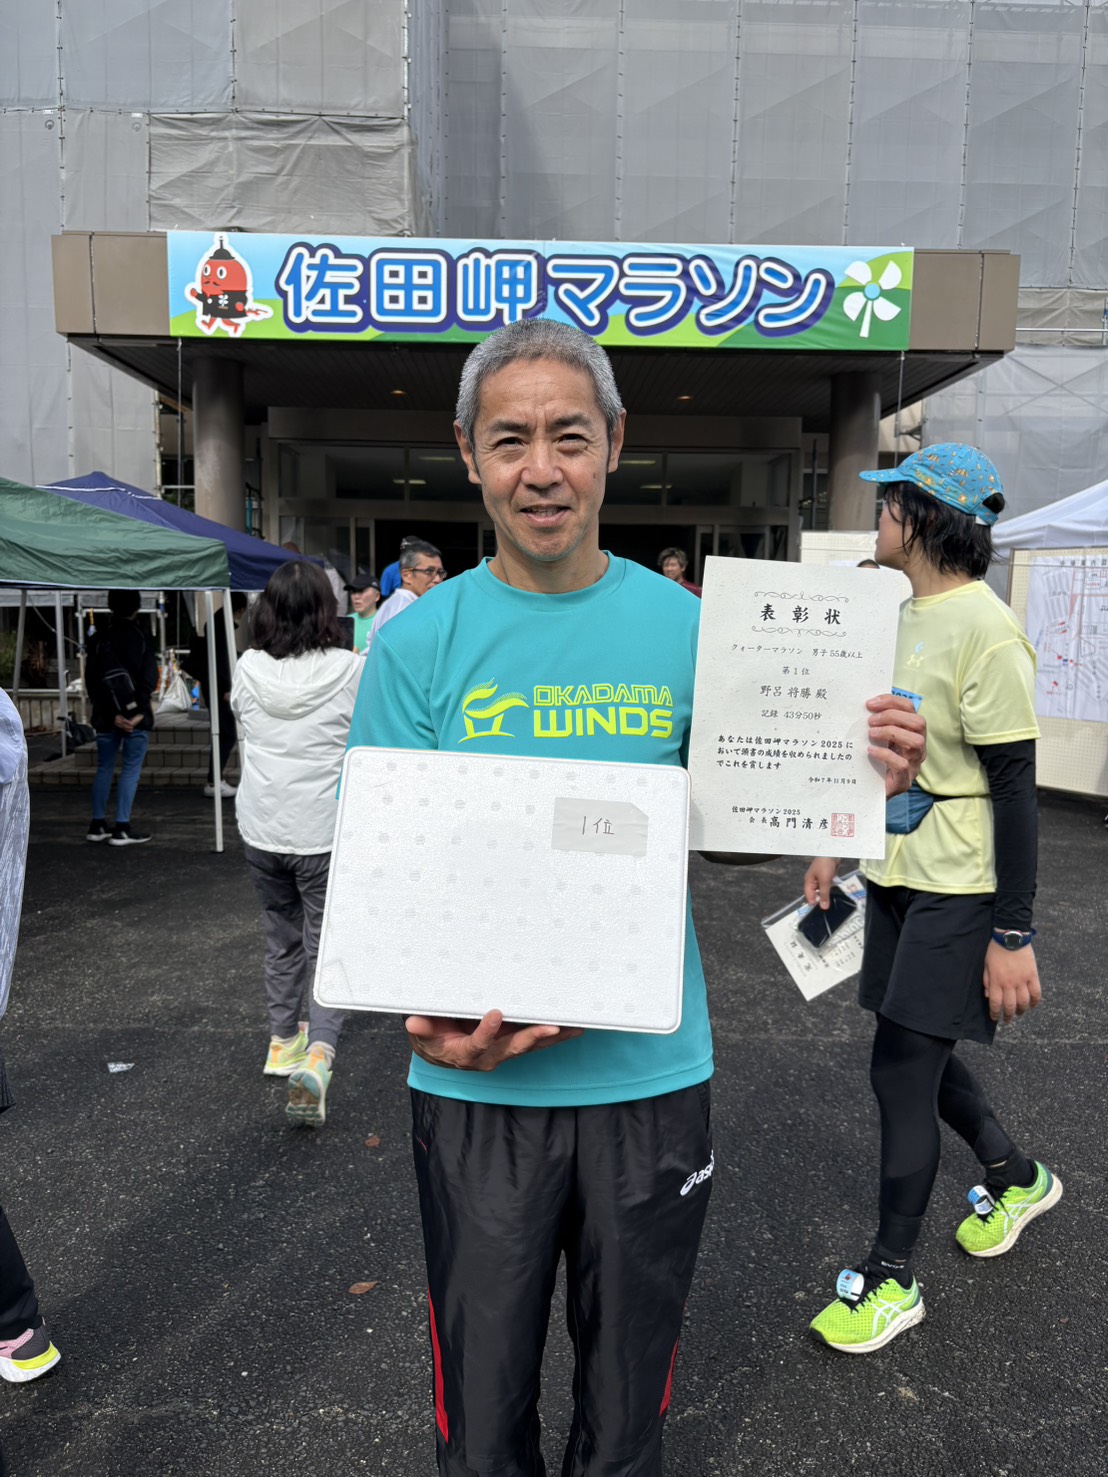 佐田岬マラソン
OKADAMA
WINDS
1位
表彰状
クォーターマラソン 男子55歳以上
第1位
野呂 将勝 殿
記録 43分50秒
あなたは佐田岬マラソン2025に
おいて頭書の成績を収められましたの
でこれを賞します
令和7年11月9日
佐田岬マラソン2025
会長 高門清彦
asics